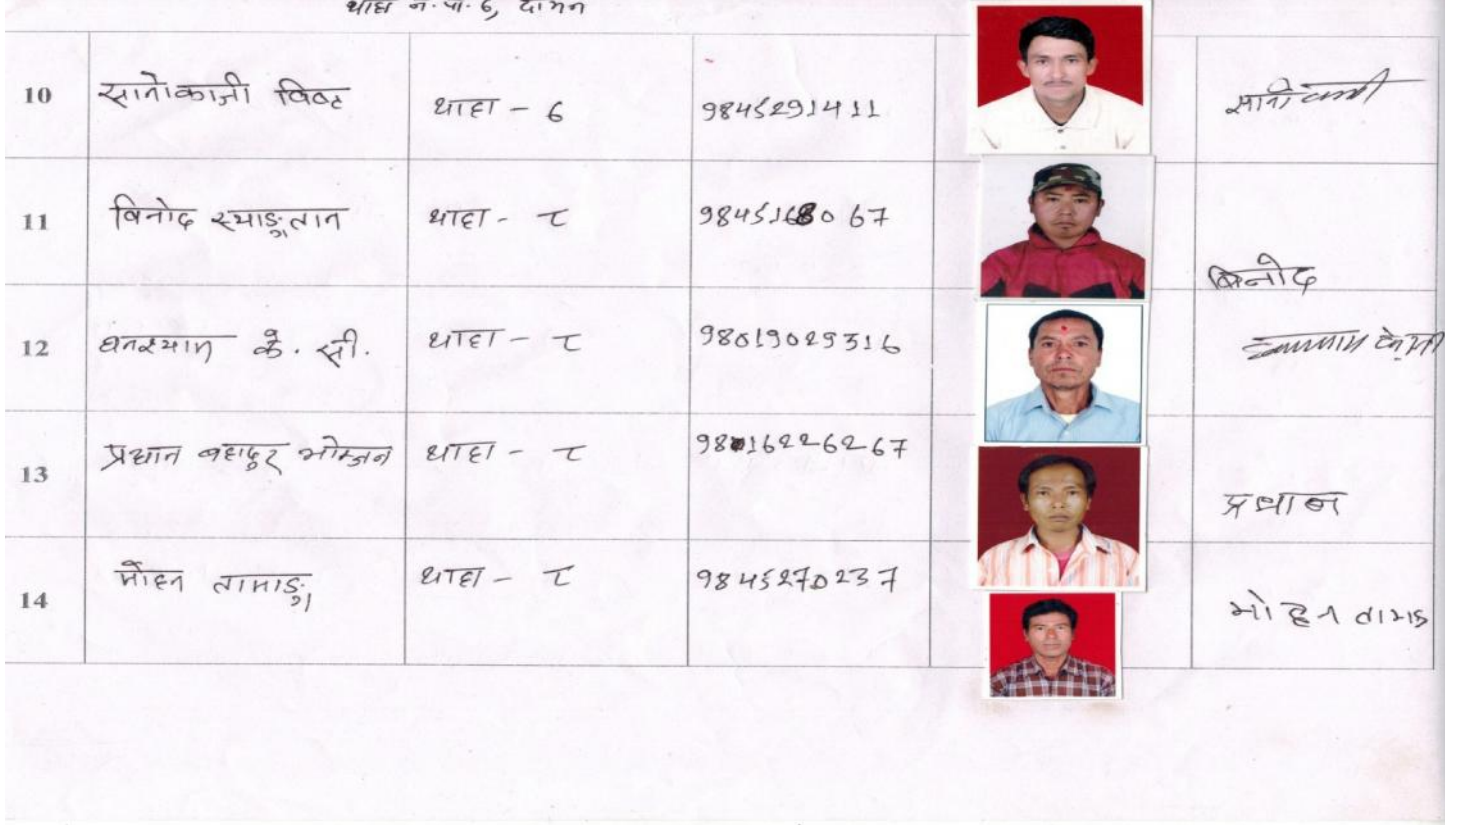 थाहा न.पा. ६, दामन
10 सानोकाजी विष्ट थाहा - 6 9845291411 सानोकाजी
11 विनोद स्याङ्तान थाहा - ८ 9845168067 विनोद
12 घनश्याम के. सी. थाहा - ८ 98019029316 घनश्याम के.सी
13 प्रधान बहादुर भोम्जन थाहा - ८ 9816226267 प्रधान
14 मोहन तामाङ्ग थाहा - ८ 9845270237 मोहन तामाङ